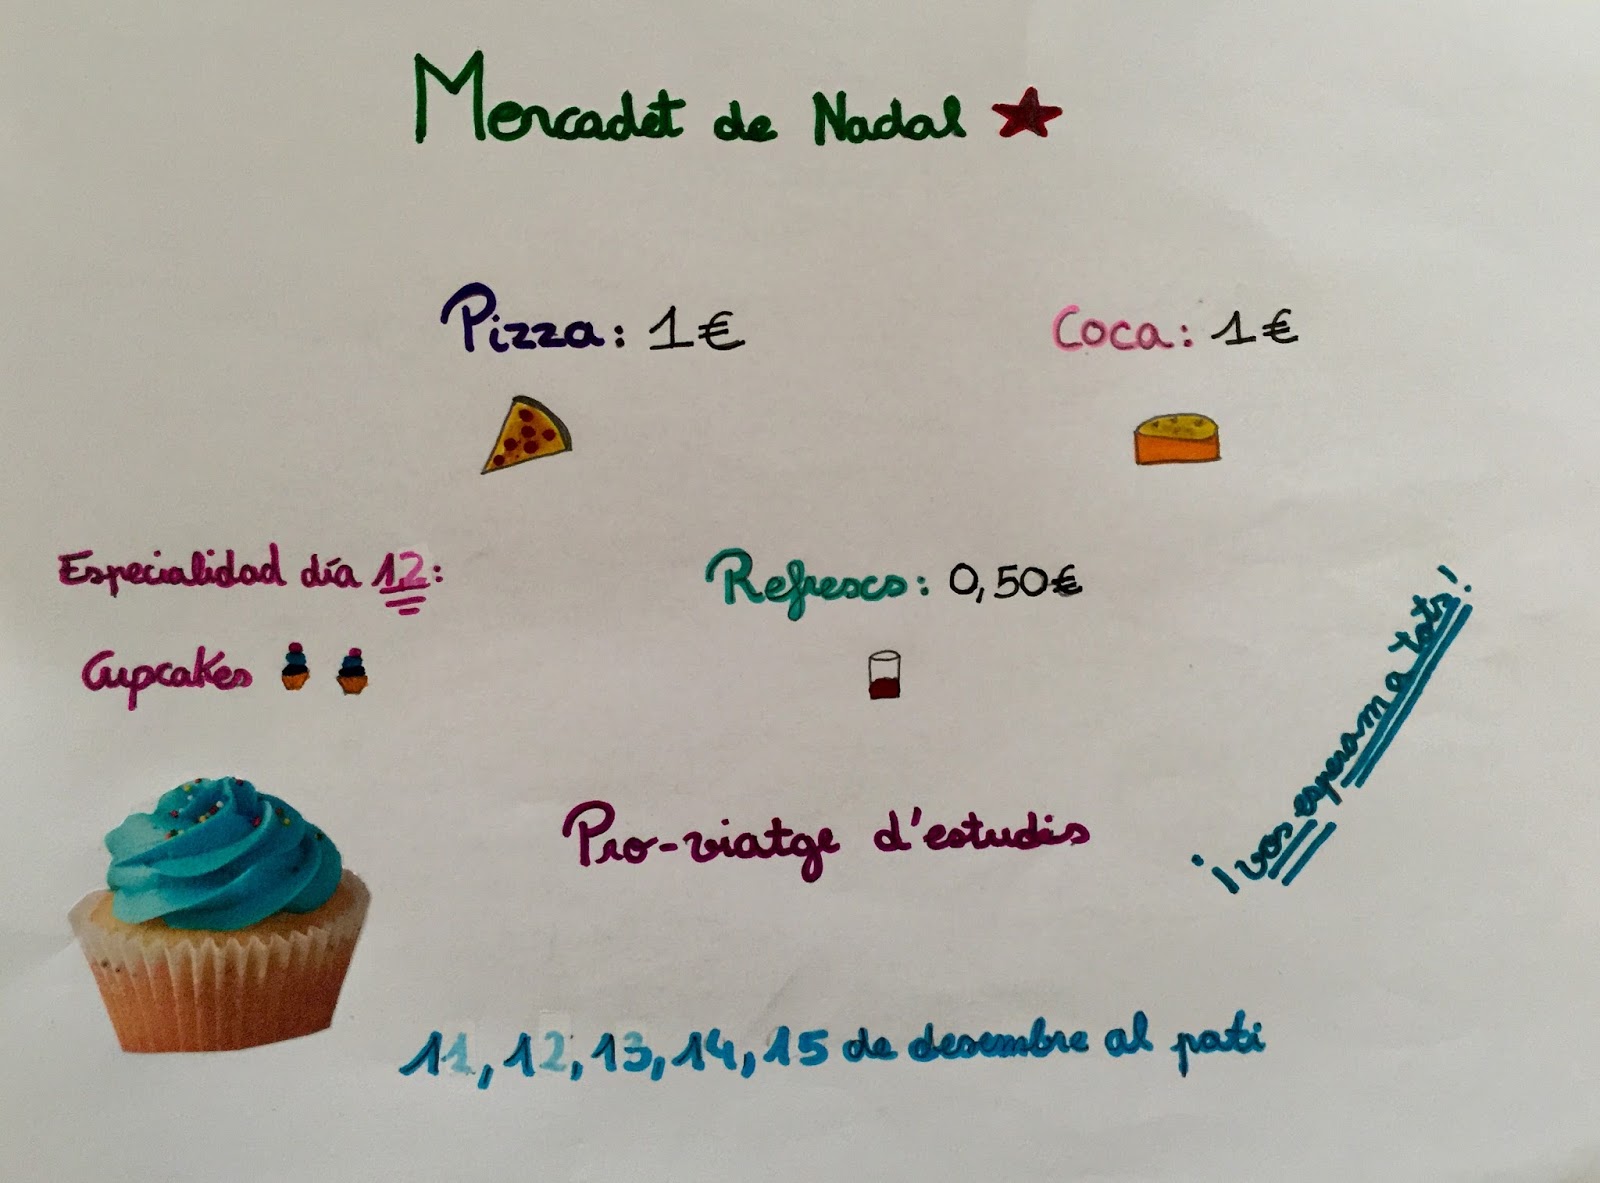 Mercadet de Nadal
Pizza: 1€
Coca: 1€
Especialidad día 12:
Cupcakes
Refrescs: 0,50€
¡vos esperam a tots!
Pro-viatge d'estudis
11, 12, 13, 14, 15 de desembre al pati